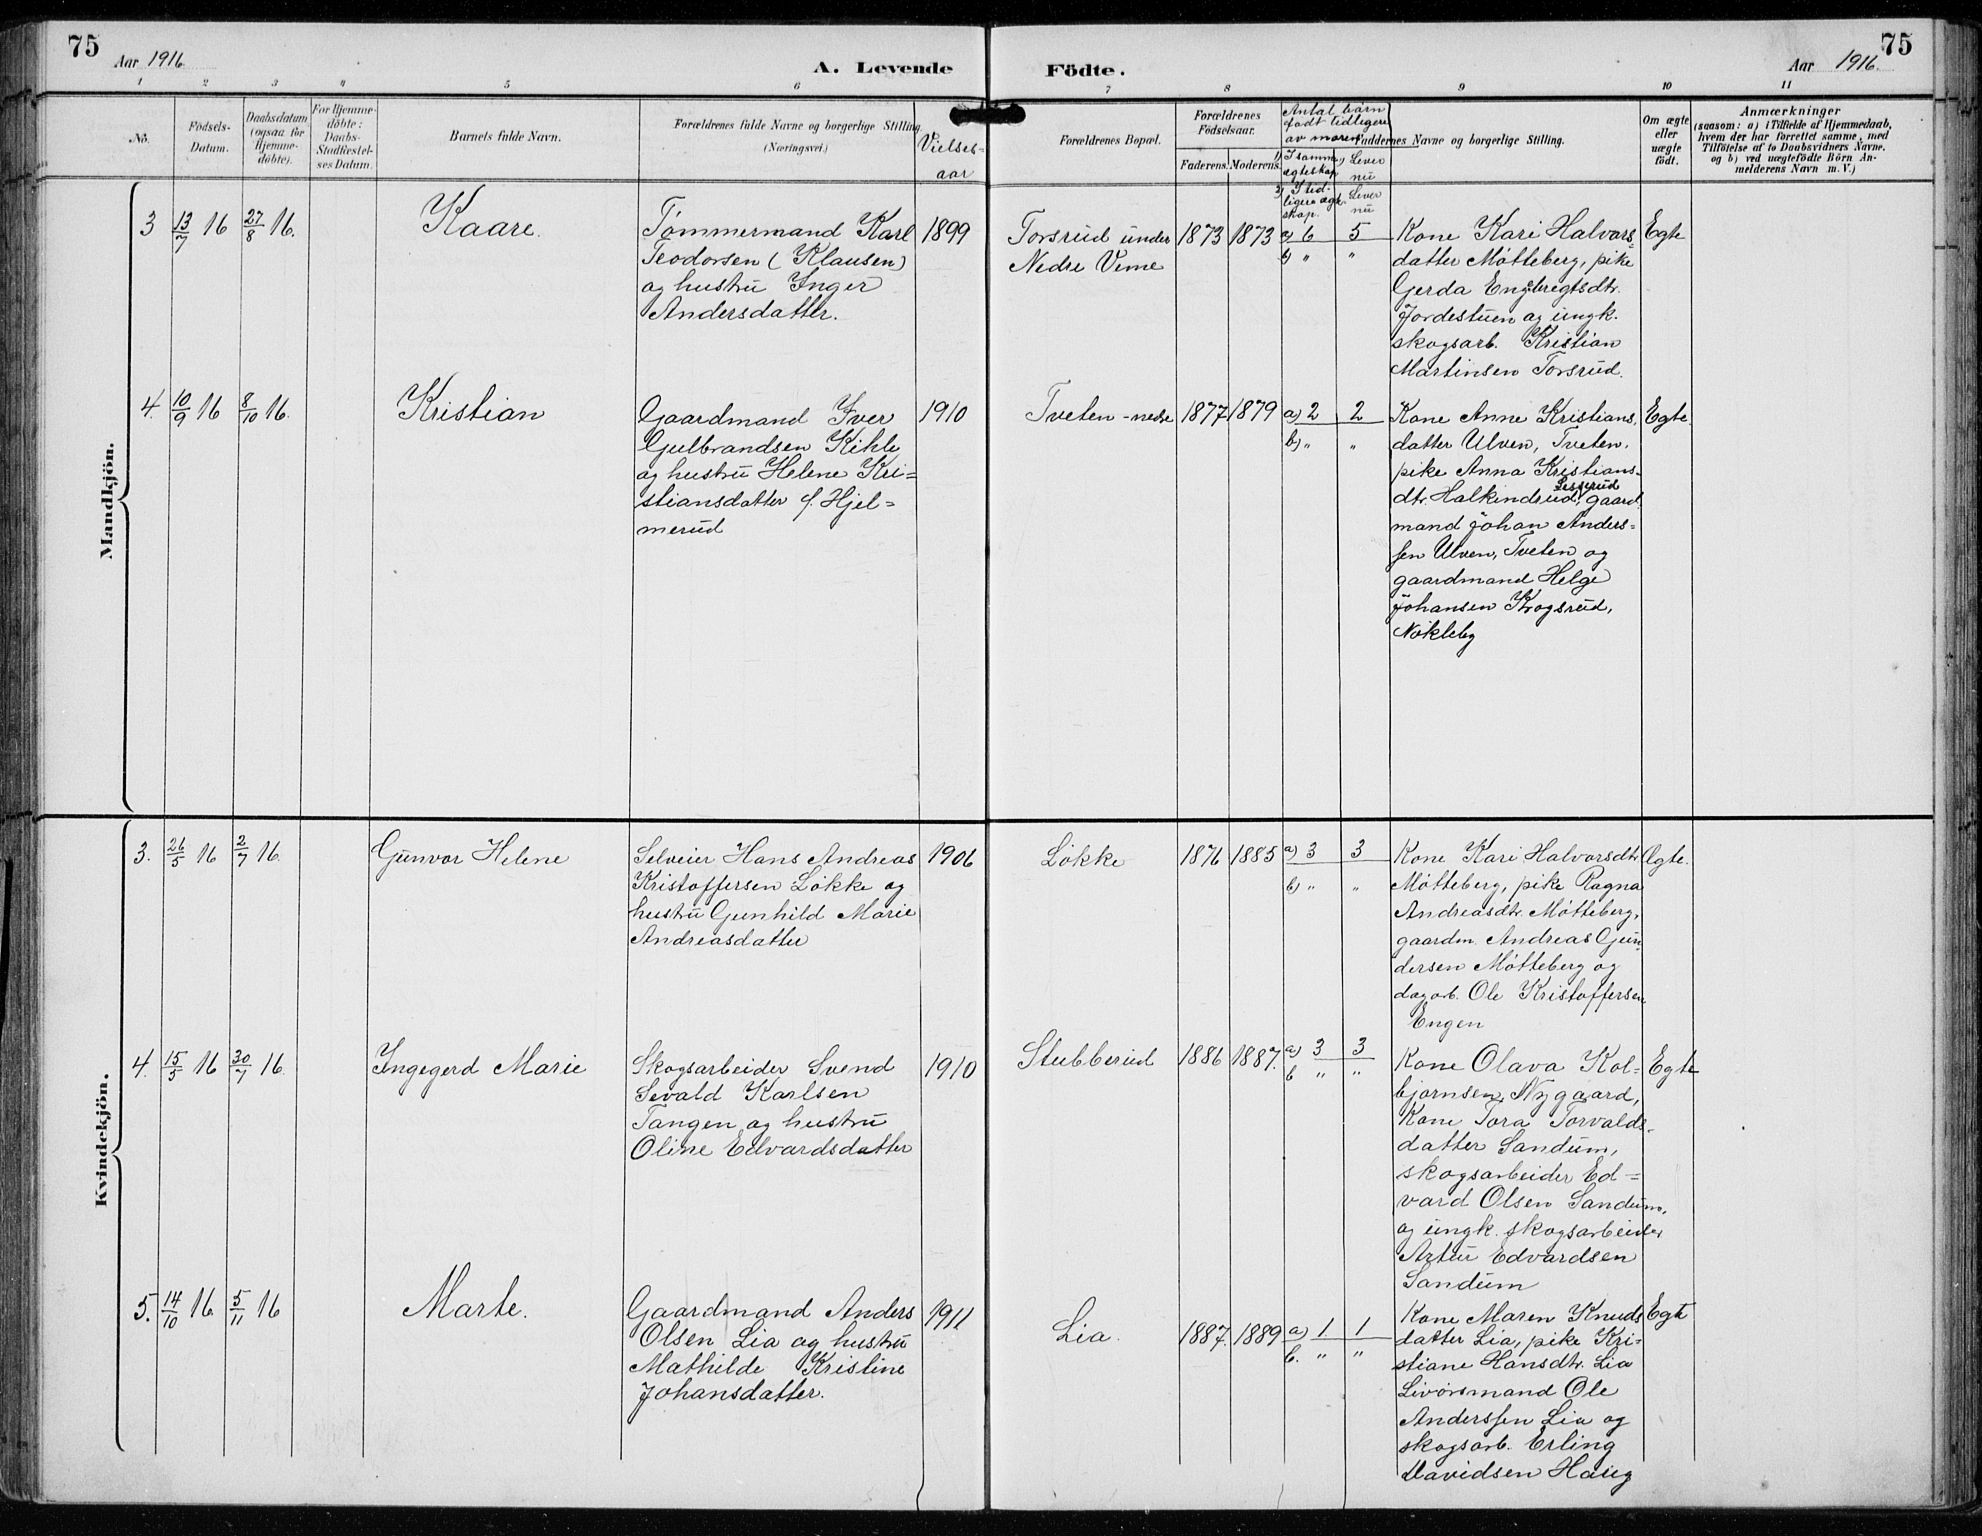 75
Aar 1916
A. Levende
Födte.
Aar 1916.
75
1
2
3
4
5
6
7
8
9
10
11
No.
Födsels-
Datum.
Daabsdatum
(ogsaa for
Hjemme-
döbte).
For Hjemme-
döbte:
Daabs-
Stadfæstel-
ses Datum.
Barnets fulde Navn.
Forældrenes fulde Navne og borgerlige Stilling
(Næringsvei.)
Vielses-
aar
Forældrenes Bopæl.
Forældrenes
Födselsaar.
Faderens.
Moderens.
Antal barn
født tidligere
av moren
1) I samme
ægteskap
Lever
nu
2) I tid-
ligere ægte-
skap.
Lever
nu
Faddernes Navne og borgerlige Stilling.
Om ægte
eller
uægte
födt.
Anmærkninger
(saasom: a) i Tilfælde af Hjemmedaab,
hvem der har forrettet samme, med
Tilföielse af to Daabsvidners Navne.
og b) ved uægtefödte Börn An-
melderens Navn m. V.)
Mandkjön.
3
13/7 16
27/8 16.
Kaare.
Tømmermand Karl
Teodorsen (Klausen)
og hustru Inger
Andersdatter.
1899
Torsrud under
Nedre Veme
1873
1873
a) 6
5
b) "
"
Kone Kari Halvors=
datter Møtteberg, pike
Gerda Engebregtsdtr.
Jordestuen og ungk.
skogsarb. Kristian
Martinsen Torsrud.
Egte
4.
10/9 16
8/10 16.
Kristian
Gaardmand Iver
Gulbrandsen Kihle
og hustru Helene Kri=
stiansdatter f. Hjel=
merud
1910
Tveten - nedre
1877
1879
a) 2
2
b) "
"
Kone Anne Kristians.
datter Ulven, Tveten,
pike Anna Kristians-
Lesserud
dtr. Halkindrud, gaard
mand Johan Anders-
sen Ulven, Tveten og
gaardmand Helge
Johansen Krogsrud,
Nøkleby
Egte.
Kvindekjön.
3.
26/5 16
2/7 16.
Gunvor Helene
Selveier Hans Andreas
Kristoffersen Løkke og
hustru Gunhild Marie
Andreasdatter
1906
Løkke
1876
1885
a) 3
3
b) "
"
Kone Kari Halvorsdtr.
Møtteberg, pike Ragna
Andreasdtr. Møtteberg,
gaardm. Andreas Gun-
dersen Møtteberg og
dagarb. Ole Kristoffersen
Engen
Egte.
4.
15/5 16
30/7 16.
Ingegerd Marie
Skogsarbeider Svend
Sevald Karlsen
Tangen og hustru
Oline Edvardsdatter
1910
Stubberud
1886
1887.
a) 3
3
b "
"
Kone Olava Kol=
bjørnsen, Nygaard,
Kone Tora Torvalds-
datter Sandum,
skogsarbeider Ed=
vard Olsen Sandum,
og ungk. skogsarbeider
Artur Edvardsen
Sandum
Egte
5.
14/10 16.
5/11 16
Marte.
Gaardmand Anders
Olsen Lia og hustru
Mathilde Kristine
Johansdatter.
1911
Lia.
1887.
1889
a) 1
1
b. "
"
Kone Maren Knuds
datter Lia, pike Kri=
stiane Hansdtr. Lia
Livørsmand Ole
Anderssen Lia og
skogsarb. Erling
Davidsen Haug
Egte